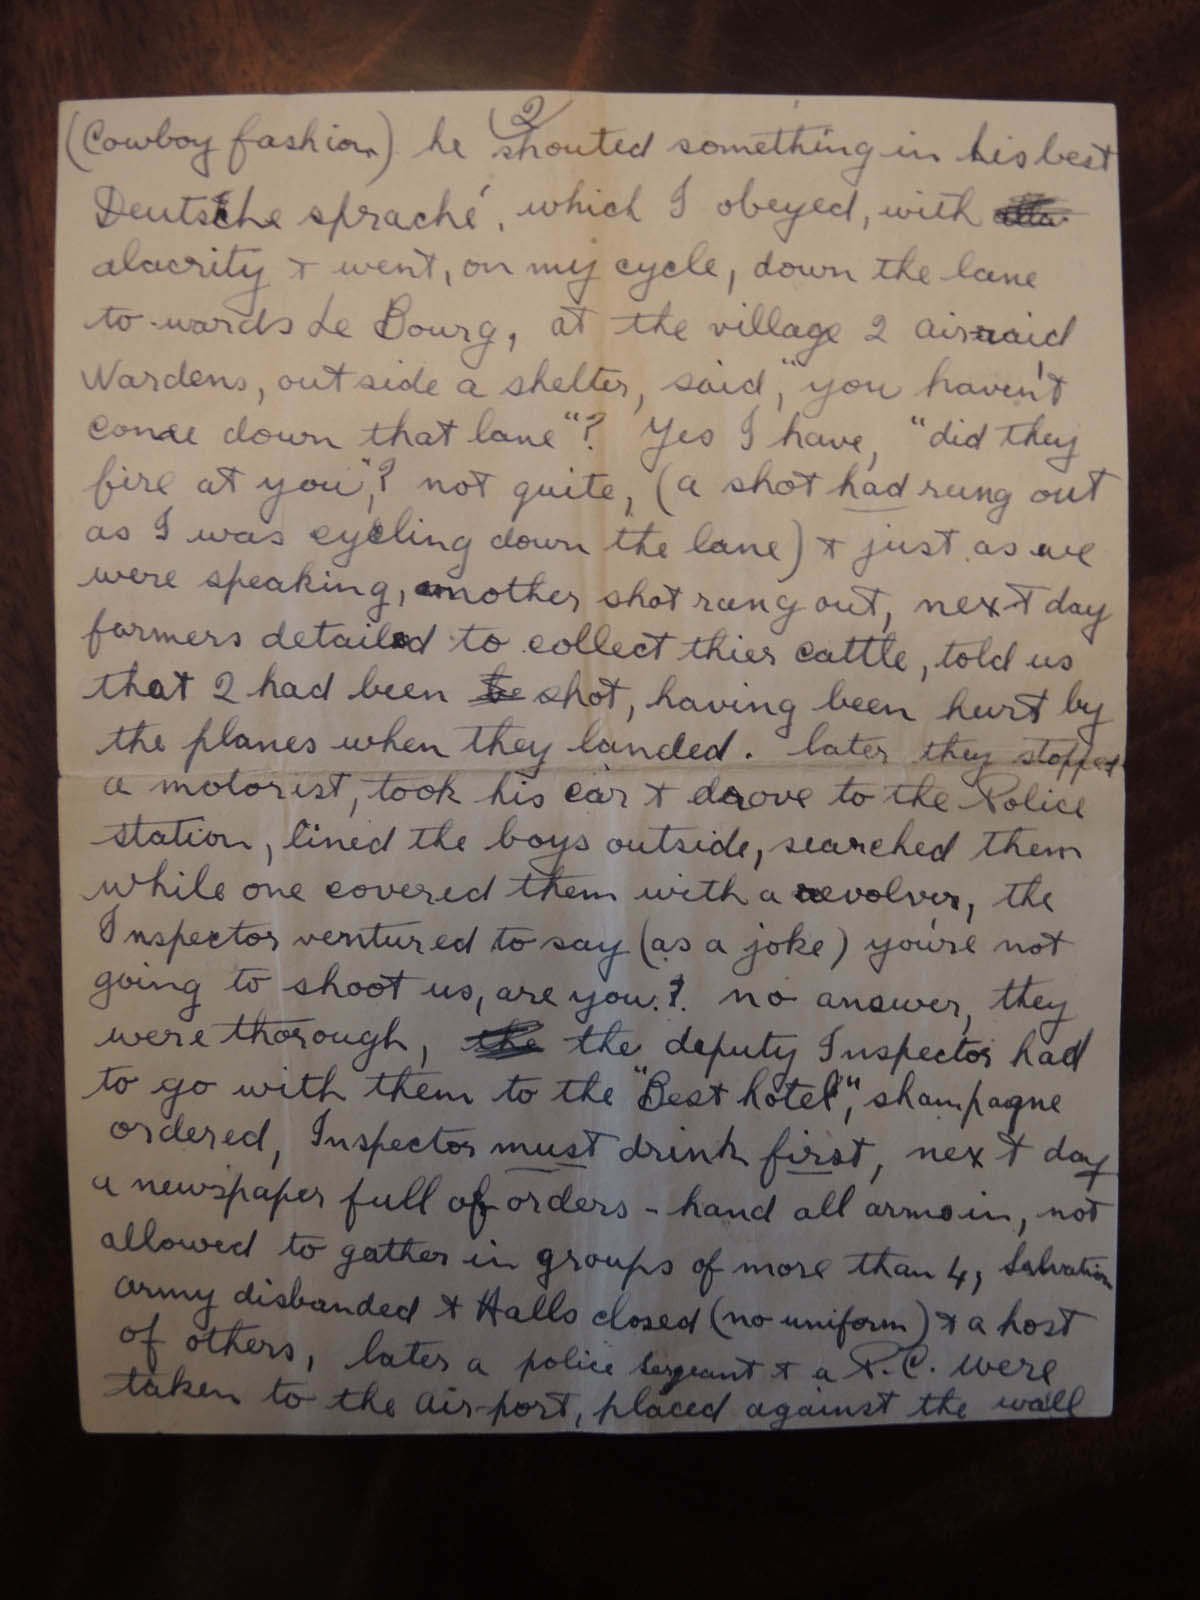 2
(Cowboy fashion) he shouted something in his best
Deutsche spraché, which I obeyed, with
alacrity & went, on my cycle, down the lane
to-wards Le Bourg, at the village 2 air raid
Wardens, outside a shelter, said, "you haven't
come down that lane"? Yes I have, "did they
fire at you",? not quite, (a shot had rung out
as I was cycling down the lane) & just as we
were speaking, another shot rung out, next day
farmers detailed to collect thier cattle, told us
that 2 had been be shot, having been hurt by
the planes when they landed. later they stopped
a motorist, took his car & drove to the Police
station, lined the boys outside, searched them
while one covered them with a revolver, the
Inspector ventured to say (as a joke) you're not
going to shoot us, are you.? no answer, they
were thorough, the the deputy Inspector had
to go with them to the "Best hotel", shampagne
ordered, Inspector must drink first, next day
a newspaper full of orders - hand all arms in, not
allowed to gather in groups of more than 4, Salvation
army disbanded & Halls closed (no uniform) & a host
of others, later a police Sergeant & a P.C. were
taken to the air-port, placed against the wall